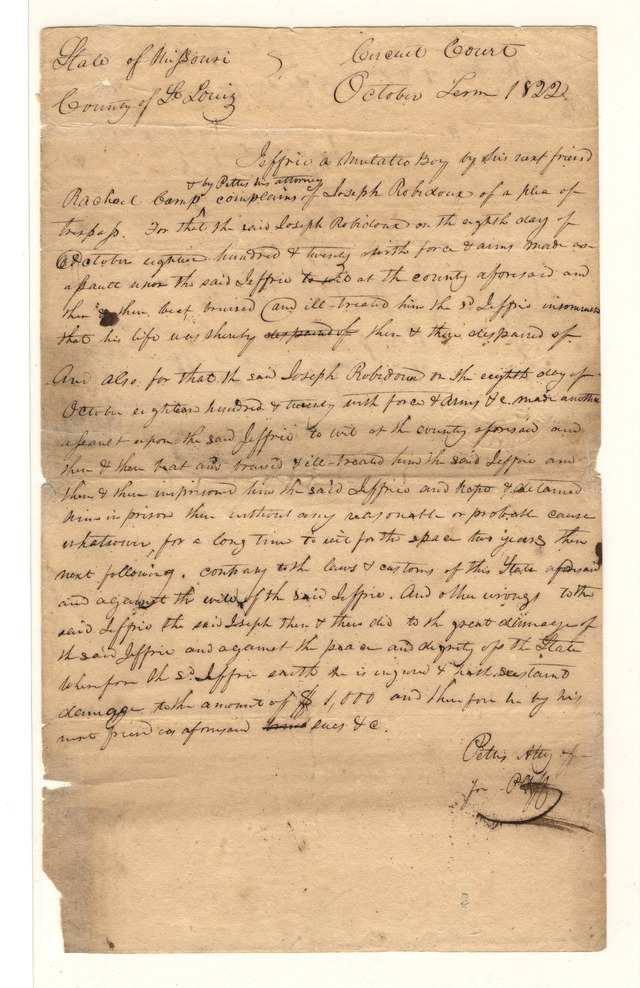 State of Missouri
Circuit Court
County of St Louis
October Term 1822.
Jeffrie a Mulatto Boy by his next friend
& by Pettis his attorney
Rachael Camp complains of Joseph Robidoux of a plea of
trespass. For that the said Joseph Robidoux on the eighth day of
October eighteen hundred & twenty with force & arms made as-
assault upon the said Jeffrie to wit at the county aforesaid and
then & then beat bruised and ill-treated him the sd. Jeffrie insomuch
that his life was thereby despaired of then & there despaired of.
And also for that the said Joseph Robidoux on the eighth day of
October eighteen hundred & twenty with force & Arms &c. made another
assault upon the said Jeffrie to wit at the county aforesaid and
then & then beat and bruised & ill-treated him the said Jeffrie and
then & then imprison him the said Jeffrie and kept & detained
him in prison then without any reasonable or probable cause
whatsoever for a long time to wit for the space two years then
next following. contrary to the laws & customs of this State aforesaid
and against the will of the said Jeffrie. And other wrongs to the
said Jeffrie the said Joseph then & there did to the great damage of
the said Jeffrie and against the peace and dignity of the State
Wherefore the sd. Jeffrie saith he is injured & hath sustaind
damage to the amount of $ 1,000 and therefore he by his
next friend as aforesaid sues & c.
Pettis Atty
for Plff